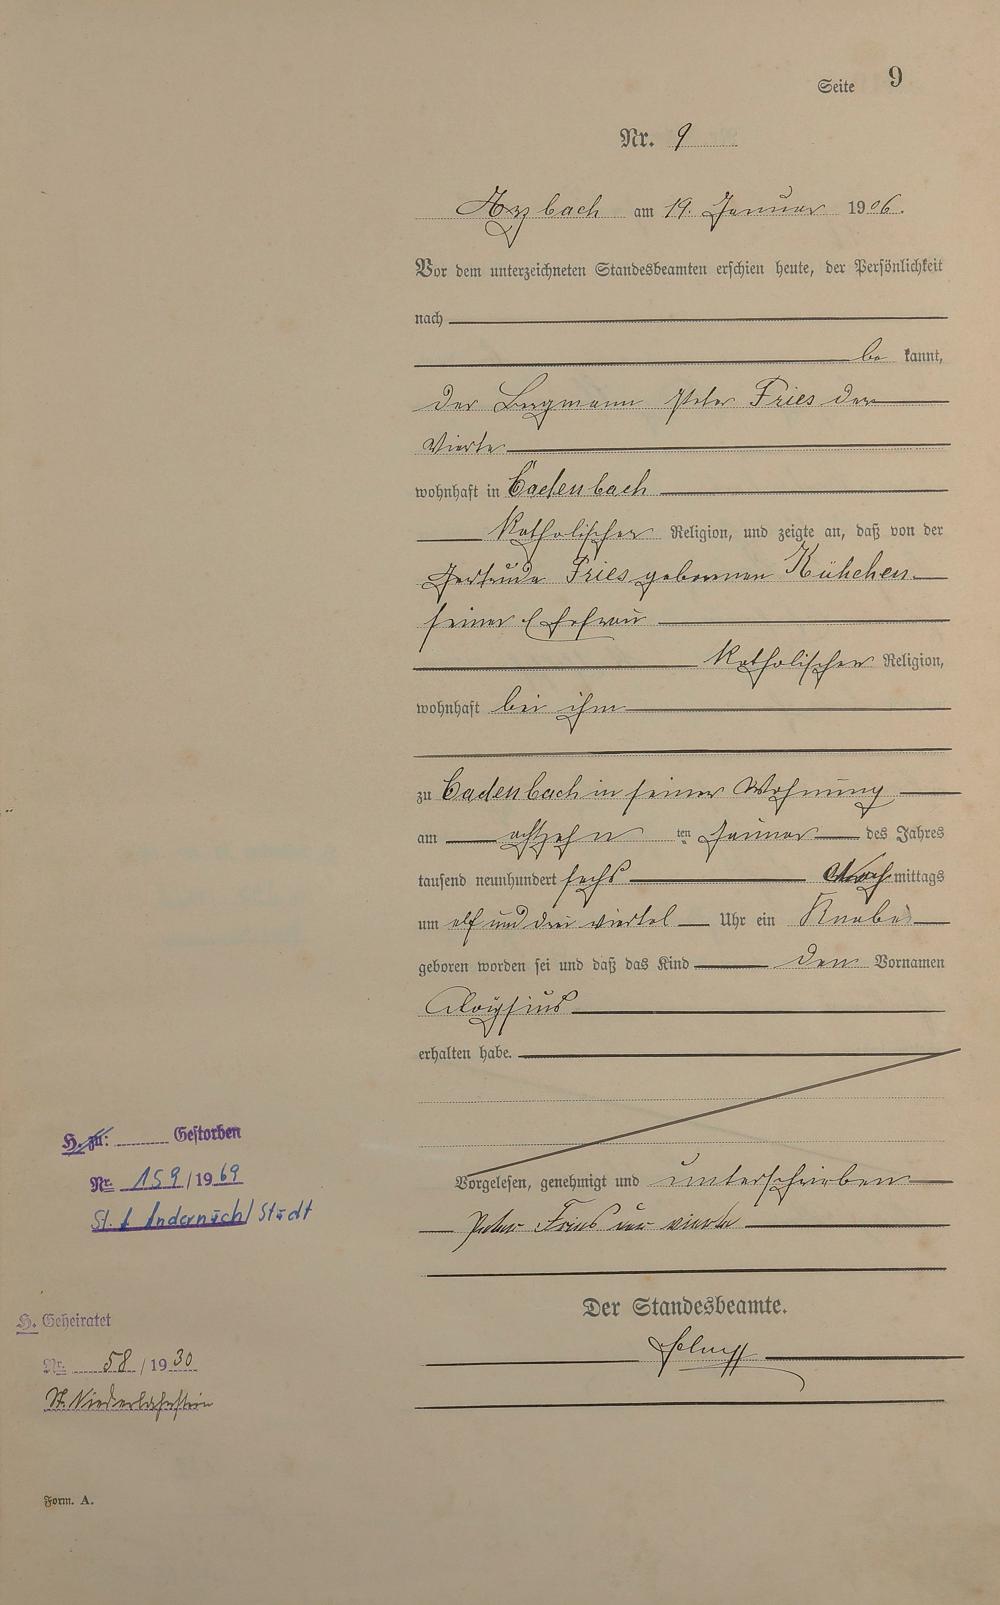 Seite 9
Nr. 9
Arzbach am 19. Januar 1906.
Vor dem unterzeichneten Standesbeamten erschien heute, der Persönlichkeit
nach
be kannt,
der Bergmann Peter Fries der
Vierte
wohnhaft in Cadenbach
katholischer Religion, und zeigte an, daß von der
Gertrude Fries geborenen Kühchen
seiner Ehefrau
katholischer Religion,
wohnhaft bei ihm
zu Cadenbach in seiner Wohnung
am achtzehn ten Januar des Jahres
tausend neunhundert sechs Nachmittags
um elf und drei viertel Uhr ein Knabe
geboren worden sei und daß das Kind den Vornamen
Aloysius
erhalten habe.
Vorgelesen, genehmigt und unterschrieben
Peter Fries der vierte
Der Standesbeamte.
H. zu: Gestorben
Nr. 159/1969
St. A. Andernach/Stadt
H. Geheiratet
Nr. 58/1930
St. Niederlahnstein
Form. A.